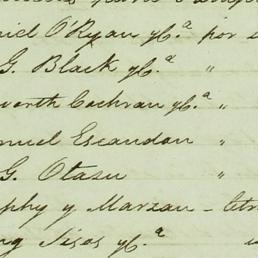 niel O'Ryan y Ca. por
G. Black y Ca. "
worth Cochran y Ca. "
nuel Escandon "
G. Otazu "
phy y Marzan -
y Ca.